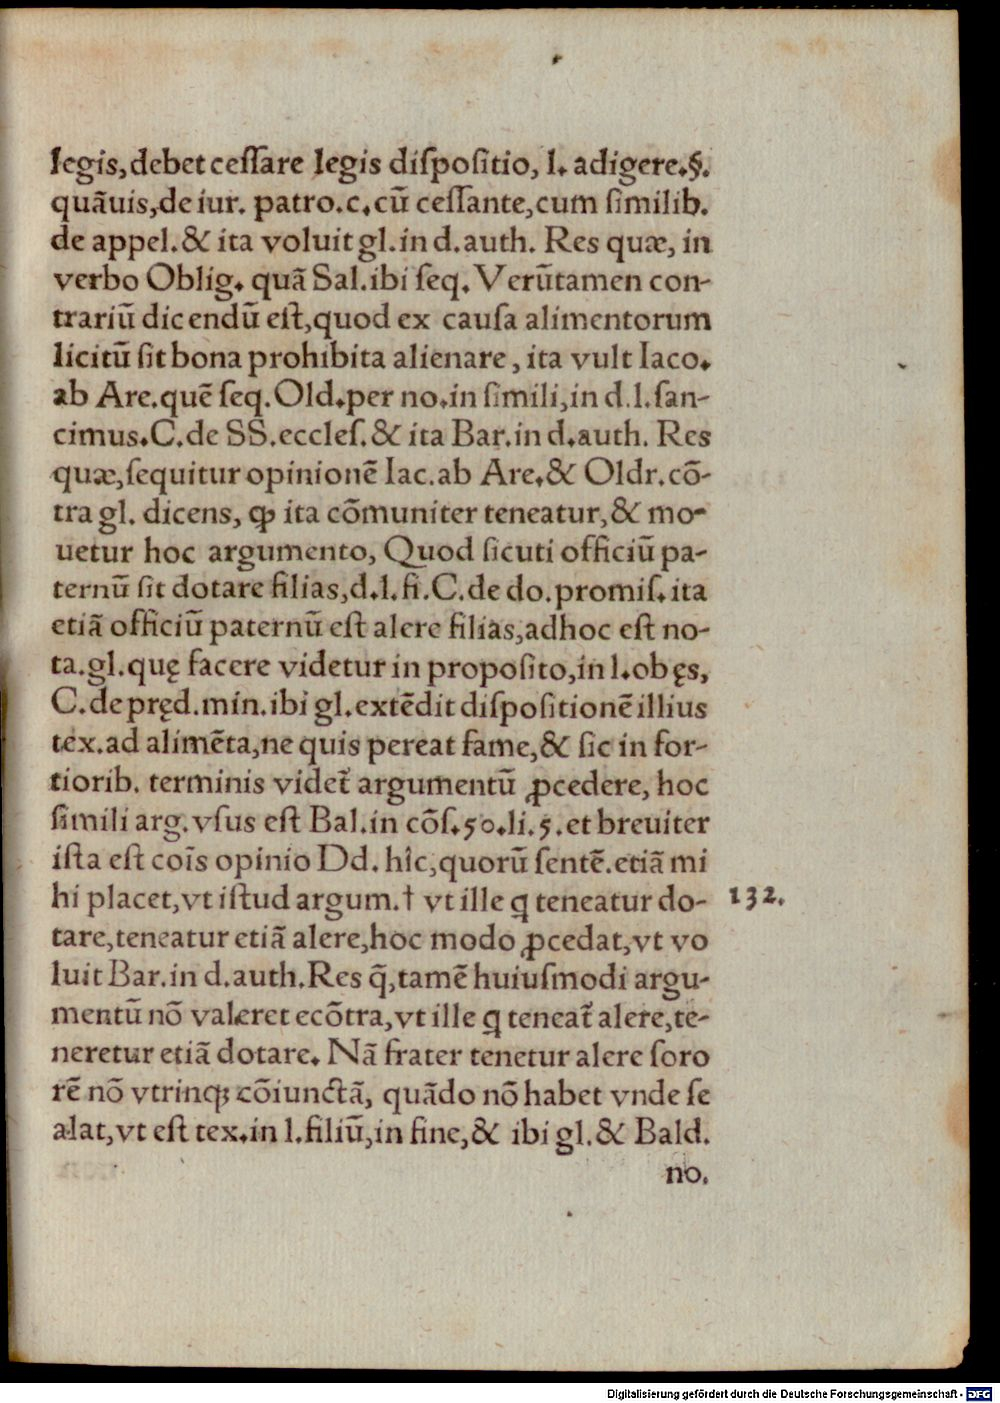 legis,debet ceſſare legis diſpoſitio, l. adigere.§.
quãuis,de iur. patro.c.cũ ceſſante,cum ſimilib.
de appel.& ita voluit gl.in d.auth. Res quæ, in
verbo Oblig. quã Sal.ibi ſeq. Verũtamen con-
trariũ dicendũ eſt,quod ex cauſa alimentorum
licitũ ſit bona prohibita alienare, ita vult Iaco.
ab Are.quẽ ſeq.Old.per no.in ſimili,in d.l.ſan-
cimus.C.de SS.eccleſ.& ita Bar.in d.auth. Res
quæ,ſequitur opinionẽ Iac.ab Are.& Oldr.cõ-
tra gl. dicens, ꝙ ita cõmuniter teneatur,& mo-
uetur hoc argumento, Quod ſicuti officiũ pa-
ternũ ſit dotare filias,d.l.fi.C.de do.promiſ.ita
etiã officiũ paternũ eſt alere filias,adhoc eſt no-
ta.gl.quę facere videtur in propoſito,in l.ob ęs,
C.de pręd.min.ibi gl.extẽdit diſpoſitionẽ illius
tex.ad alimẽta,ne quis pereat fame,& ſic in for-
tiorib. terminis videt᷑ argumentũ ꝓcedere, hoc
ſimili arg.vſus eſt Bal.in cõſ.50.li.5.et breuiter
iſta eſt coĩs opinio Dd. hîc,quorũ ſentẽ.etiã mi
hi placet,vt iſtud argum.† vt ille q teneatur do-
132.
tare,teneatur etiã alere,hoc modo ꝓcedat,vt vo
luit Bar.in d.auth.Res q̃,tamẽ huiuſmodi argu-
mentũ nõ valeret ecõtra,vt ille q teneat᷑ alere,te-
neretur etiã dotare. Nã frater tenetur alere ſoro
rẽ nõ vtrinqꝫ cõiunctã, quãdo nõ habet vnde ſe
alat,vt eſt tex.in l.filiũ,in fine,& ibi gl.& Bald.
no.
Digitalisierung gefördert durch die Deutsche Forschungsgemeinschaft - DFG